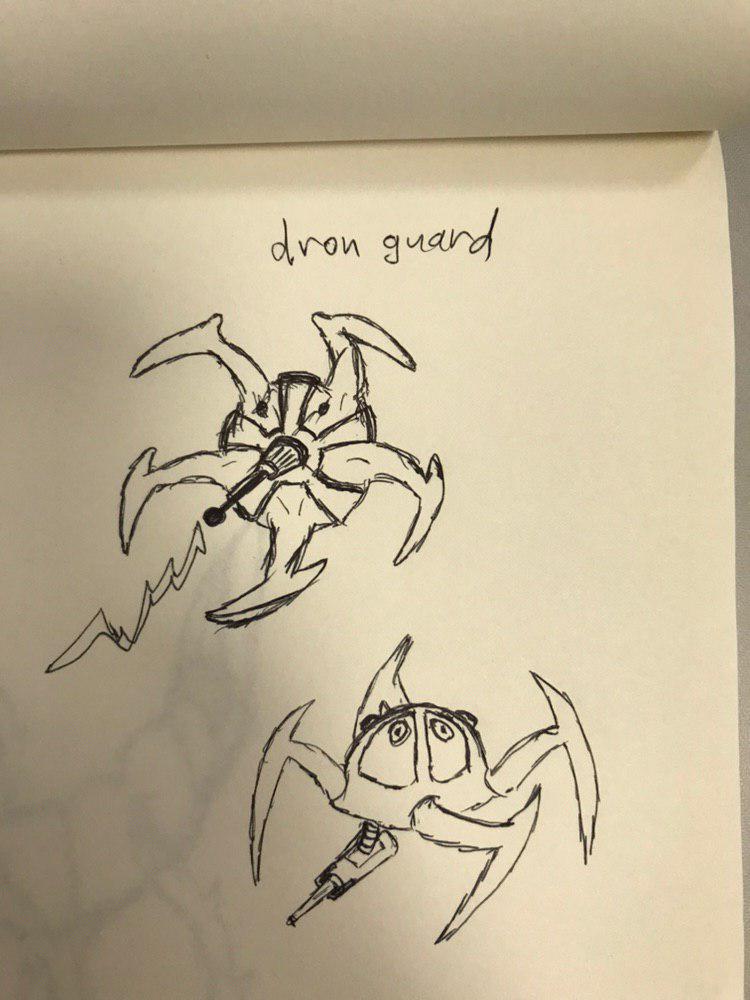 dron guard